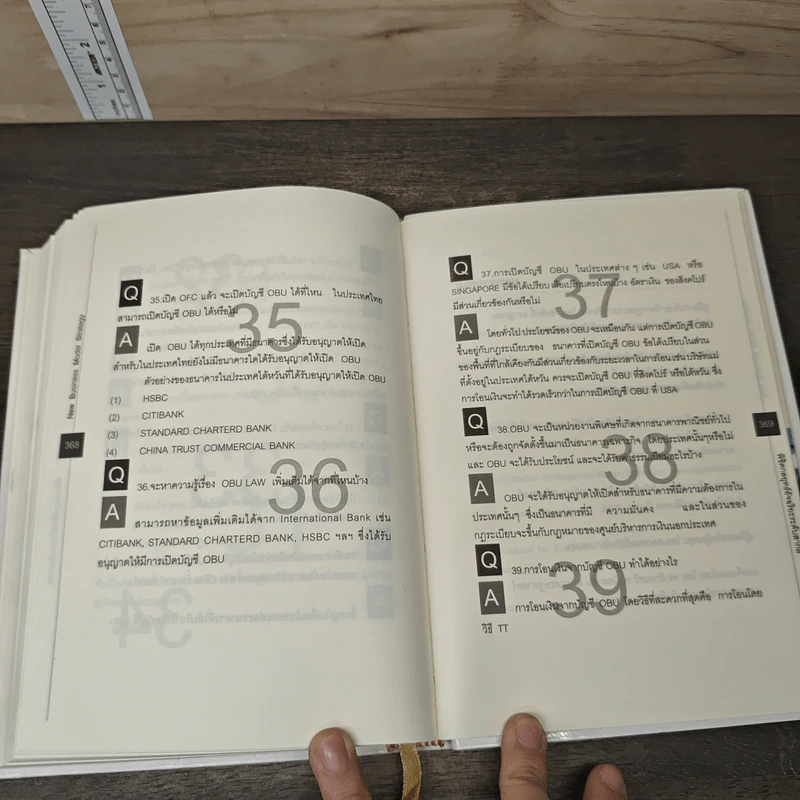 New Business Model Strategy
368
Q 35.เปิด OFC แล้ว จะเปิดบัญชี OBU ได้ที่ไหน ในประเทศไทย
สามารถเปิดบัญชี OBU ได้หรือไม่
35
A เปิด OBU ได้ทุกประเทศที่มีธนาคารซึ่งได้รับอนุญาตให้เปิด
สำหรับในประเทศไทยยังไม่มีธนาคารใดได้รับอนุญาตให้เปิด OBU
ตัวอย่างของธนาคารในประเทศไต้หวันที่ได้รับอนุญาตให้เปิด OBU
(1) HSBC
(2) CITIBANK
(3) STANDARD CHARTERD BANK
(4) CHINA TRUST COMMERCIAL BANK
Q 36.จะหาความรู้เรื่อง OBU LAW เพิ่มเติมได้จากที่ไหนบ้าง
36
A สามารถหาข้อมูลเพิ่มเติมได้จาก International Bank เช่น
CITIBANK, STANDARD CHARTERD BANK, HSBC ฯลฯ ซึ่งได้รับ
อนุญาตให้มีการเปิดบัญชี OBU
34
Q 37.การเปิดบัญชี OBU ในประเทศต่าง ๆ เช่น USA หรือ
SINGAPORE มีข้อได้เปรียบ เสียเปรียบตรงไหนบ้าง อัตราเงิน ของสิงคโปร์
มีส่วนเกี่ยวข้องกันหรือไม่
37
A โดยทั่วไป ประโยชน์ของ OBU จะเหมือนกัน แต่การเปิดบัญชี OBU
ขึ้นอยู่กับกฎระเบียบของ ธนาคารที่เปิดบัญชี OBU ข้อได้เปรียบในส่วน
ของพื้นที่ที่ใกล้เคียงกันมีส่วนเกี่ยวข้องกับระยะเวลาในการโอน เช่น บริษัทแม่
ที่ตั้งอยู่ในประเทศไต้หวัน ควรจะเปิดบัญชี OBU ที่สิงคโปร์ หรือไต้หวัน ซึ่ง
การโอนเงินจะทำได้รวดเร็วกว่าในการเปิดบัญชี OBU ที่ USA
Q 38.OBU จะเป็นหน่วยงานพิเศษที่เกิดจากธนาคารพาณิชย์ทั่วไป
หรือจะต้องถูกจัดตั้งขึ้นมาเป็นธนาคารเฉพาะกิจ โดยประเทศนั้นๆหรือไม่
และ OBU จะได้รับประโยชน์ และจะได้รับค่าธรรมเนียมอะไรบ้าง
38
A OBU จะได้รับอนุญาตให้เปิดสำหรับธนาคารที่มีความต้องการใน
ประเทศนั้นๆ ซึ่งเป็นธนาคารที่มี ความมั่นคง และในส่วนของ
กฎระเบียบจะขึ้นกับกฎหมายของศูนย์บริหารการเงินนอกประเทศ
Q 39.การโอนเงินจากบัญชี OBU ทำได้อย่างไร
39
A การโอนเงินจากบัญชี OBU โดยวิธีที่สะดวกที่สุดคือ การโอนโดย
วิธี TT
369